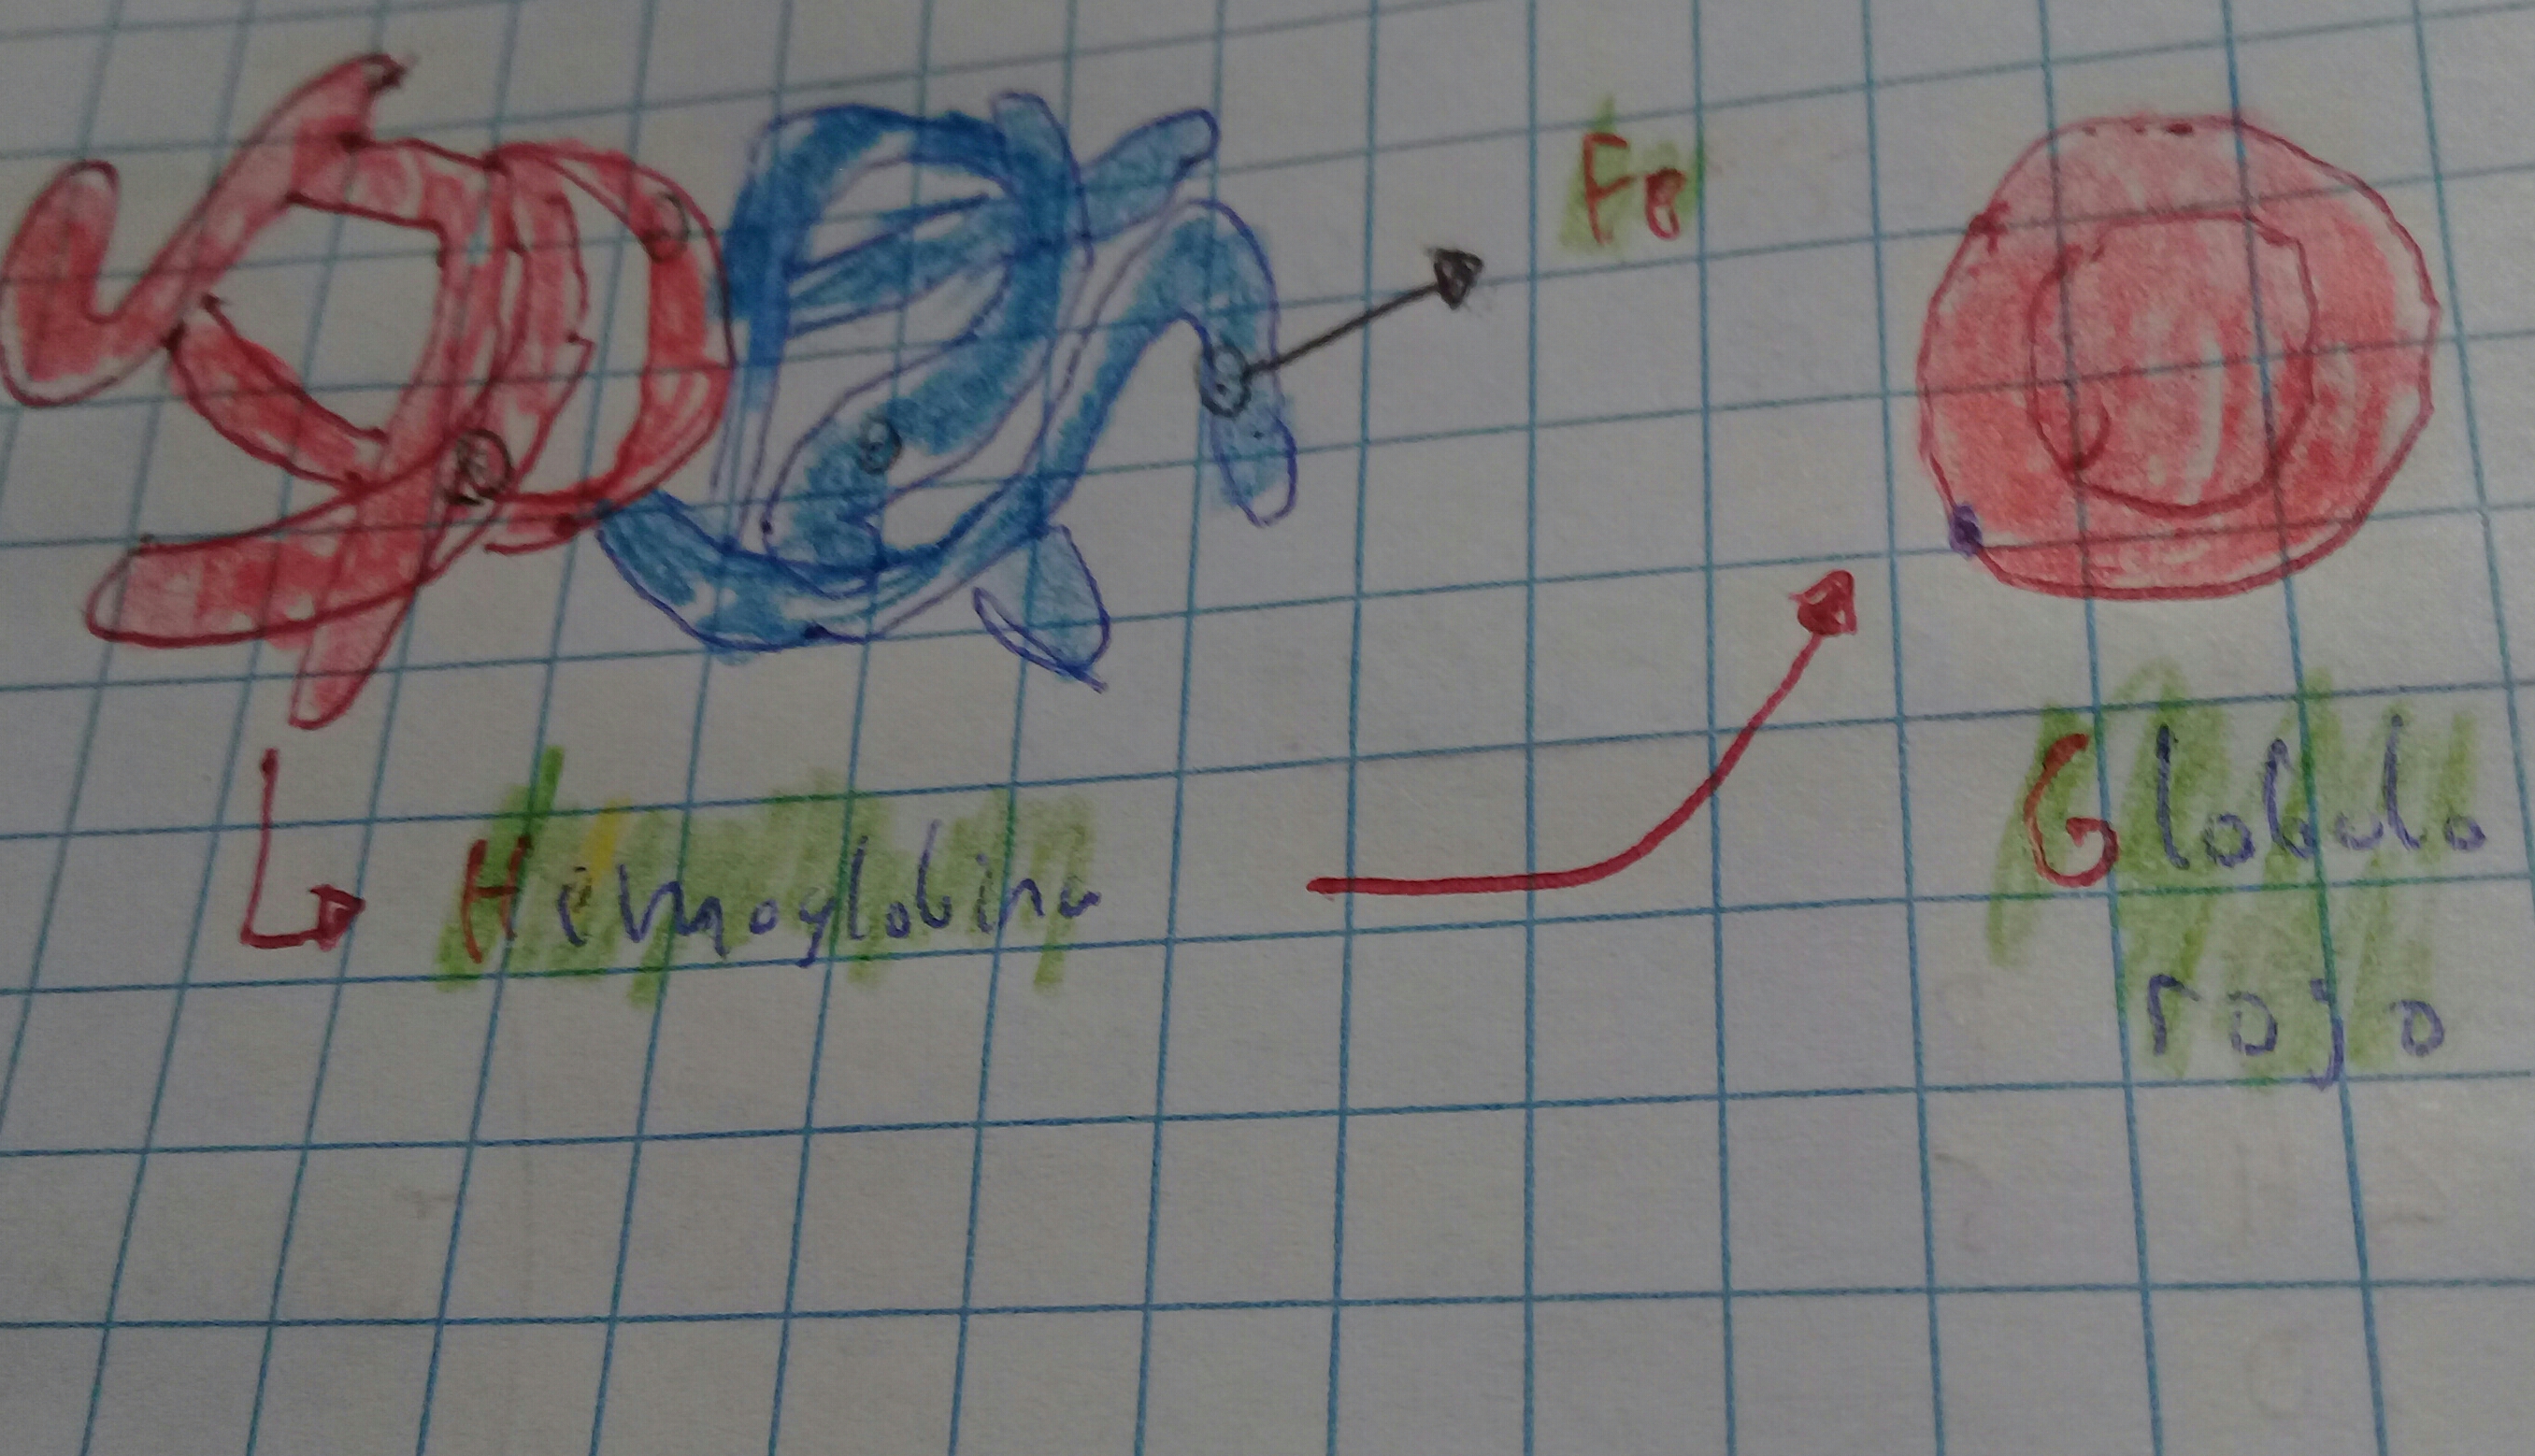 Fe
Hemoglobina
Globulo
rojo